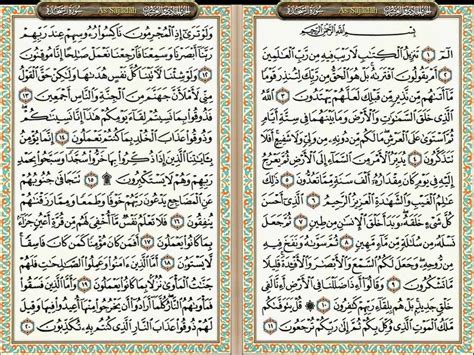 As Sajdah
بِسْمِ اللَّهِ الرَّحْمَٰنِ الرَّحِيمِ
الٓمٓ ١ تَنزِيلُ الْكِتَٰبِ لَا رَيْبَ فِيهِ مِن رَّبِّ الْعَٰلَمِينَ
٢ أَمْ يَقُولُونَ افْتَرَىٰهُ بَلْ هُوَ الْحَقُّ مِن رَّبِّكَ لِتُنذِرَ قَوْمًا
مَّآ أَتَىٰهُم مِّن نَّذِيرٍ مِّن قَبْلِكَ لَعَلَّهُمْ يَهْتَدُونَ ٣ اللَّهُ
الَّذِي خَلَقَ السَّمَٰوَٰتِ وَالْأَرْضَ وَمَا بَيْنَهُمَا فِي سِتَّةِ أَيَّامٍ
ثُمَّ اسْتَوَىٰ عَلَى الْعَرْشِ مَا لَكُم مِّن دُونِهِ مِن وَلِيٍّ وَلَا شَفِيعٍ أَفَلَا
تَتَذَكَّرُونَ ٤ يُدَبِّرُ الْأَمْرَ مِنَ السَّمَآءِ إِلَى الْأَرْضِ ثُمَّ يَعْرُجُ
إِلَيْهِ فِي يَوْمٍ كَانَ مِقْدَارُهُ أَلْفَ سَنَةٍ مِّمَّا تَعُدُّونَ ٥ ذَٰلِكَ
عَٰلِمُ الْغَيْبِ وَالشَّهَٰدَةِ الْعَزِيزُ الرَّحِيمُ ٦ الَّذِي أَحْسَنَ
كُلَّ شَيْءٍ خَلَقَهُ وَبَدَأَ خَلْقَ الْإِنسَٰنِ مِن طِينٍ ٧ ثُمَّ جَعَلَ
نَسْلَهُ مِن سُلَٰلَةٍ مِّن مَّآءٍ مَّهِينٍ ٨ ثُمَّ سَوَّىٰهُ وَنَفَخَ فِيهِ
مِن رُّوحِهِ وَجَعَلَ لَكُمُ السَّمْعَ وَالْأَبْصَٰرَ وَالْأَفْـِٔدَةَ قَلِيلًا
مَّا تَشْكُرُونَ ٩ وَقَالُوٓا أَءِذَا ضَلَلْنَا فِي الْأَرْضِ أَءِنَّا لَفِي
خَلْقٍ جَدِيدٍ بَلْ هُم بِلِقَآءِ رَبِّهِمْ كَٰفِرُونَ ١٠ قُلْ يَتَوَفَّىٰكُم
مَّلَكُ الْمَوْتِ الَّذِي وُكِّلَ بِكُمْ ثُمَّ إِلَىٰ رَبِّكُمْ تُرْجَعُونَ ١١
As Sajdah
وَلَوْ تَرَىٰٓ إِذِ الْمُجْرِمُونَ نَاكِسُوا رُءُوسِهِمْ عِندَ رَبِّهِمْ
رَبَّنَآ أَبْصَرْنَا وَسَمِعْنَا فَارْجِعْنَا نَعْمَلْ صَٰلِحًا إِنَّا مُوقِنُونَ
١٢ وَلَوْ شِئْنَا لَءَاتَيْنَا كُلَّ نَفْسٍ هُدَىٰهَا وَلَٰكِنْ حَقَّ الْقَوْلُ
مِنِّي لَأَمْلَأَنَّ جَهَنَّمَ مِنَ الْجِنَّةِ وَالنَّاسِ أَجْمَعِينَ ١٣
فَذُوقُوا بِمَا نَسِيتُمْ لِقَآءَ يَوْمِكُمْ هَٰذَآ إِنَّا نَسِينَٰكُمْ
وَذُوقُوا عَذَابَ الْخُلْدِ بِمَا كُنتُمْ تَعْمَلُونَ ١٤ إِنَّمَا يُؤْمِنُ
بِـَٔايَٰتِنَا الَّذِينَ إِذَا ذُكِّرُوا بِهَا خَرُّوا سُجَّدًا وَسَبَّحُوا بِحَمْدِ
رَبِّهِمْ وَهُمْ لَا يَسْتَكْبِرُونَ ۩ ١٥ تَتَجَافَىٰ جُنُوبُهُمْ
عَنِ الْمَضَاجِعِ يَدْعُونَ رَبَّهُمْ خَوْفًا وَطَمَعًا وَمِمَّا رَزَقْنَٰهُمْ
يُنفِقُونَ ١٦ فَلَا تَعْلَمُ نَفْسٌ مَّآ أُخْفِيَ لَهُم مِّن قُرَّةِ أَعْيُنٍ جَزَآءً
بِمَا كَانُوا يَعْمَلُونَ ١٧ أَفَمَن كَانَ مُؤْمِنًا كَمَن كَانَ فَاسِقًا
لَّا يَسْتَوُونَ ١٨ أَمَّا الَّذِينَ ءَامَنُوا وَعَمِلُوا الصَّٰلِحَٰتِ فَلَهُمْ
جَنَّٰتُ الْمَأْوَىٰ نُزُلًا بِمَا كَانُوا يَعْمَلُونَ ١٩ وَأَمَّا الَّذِينَ فَسَقُوا
فَمَأْوَىٰهُمُ النَّارُ كُلَّمَآ أَرَادُوٓا أَن يَخْرُجُوا مِنْهَآ أُعِيدُوا فِيهَا وَقِيلَ
لَهُمْ ذُوقُوا عَذَابَ النَّارِ الَّذِي كُنتُم بِهِ تُكَذِّبُونَ ٢٠